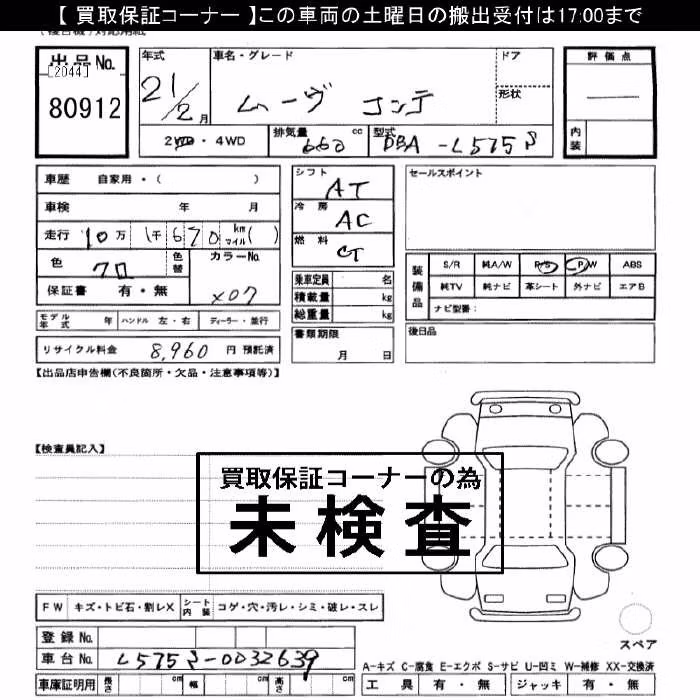 【 買取保証コーナー 】この車両の土曜日の搬出受付は17:00まで
出品No.
[2044]
80912
年式
21/2月
車名・グレード
ムーヴ コンテ
ドア
形状
評価点
内装
2WD・4WD
排気量 660 cc
型式 DBA-L575S
車歴 自家用・( )
車検 年 月
走行 10万 1千 670 km マイル( )
色 クロ
色替
カラーNo. X07
保証書 有・無
モデル年式 年 ハンドル 左・右 ディーラー・並行
リサイクル料金 8,960 円 預託済
シフト AT
冷房 AC
燃料
乗車定員 名
積載量 kg
総重量 kg
書類期限
月 日
セールスポイント
装備品
S/R 純A/W P/S P/W ABS
純TV 純ナビ 革シート 外ナビ エアB
ナビ型番:
後日品
【出品店申告欄(不良箇所・欠品・注意事項等)】
【検査員記入】
買取保証コーナーの為
未検査
FW キズ・トビ石・割レX シート内装 コゲ・穴・汚レ・シミ・破レ・スレ
登録No.
車台No. L575S-0032639
車庫証明用 長さ cm 幅 cm 高さ cm
スペア
A-キズ C-腐食 E-エクボ S-サビ U-凹ミ W-補修 XX-交換済
工具 有・無 ジャッキ 有・無